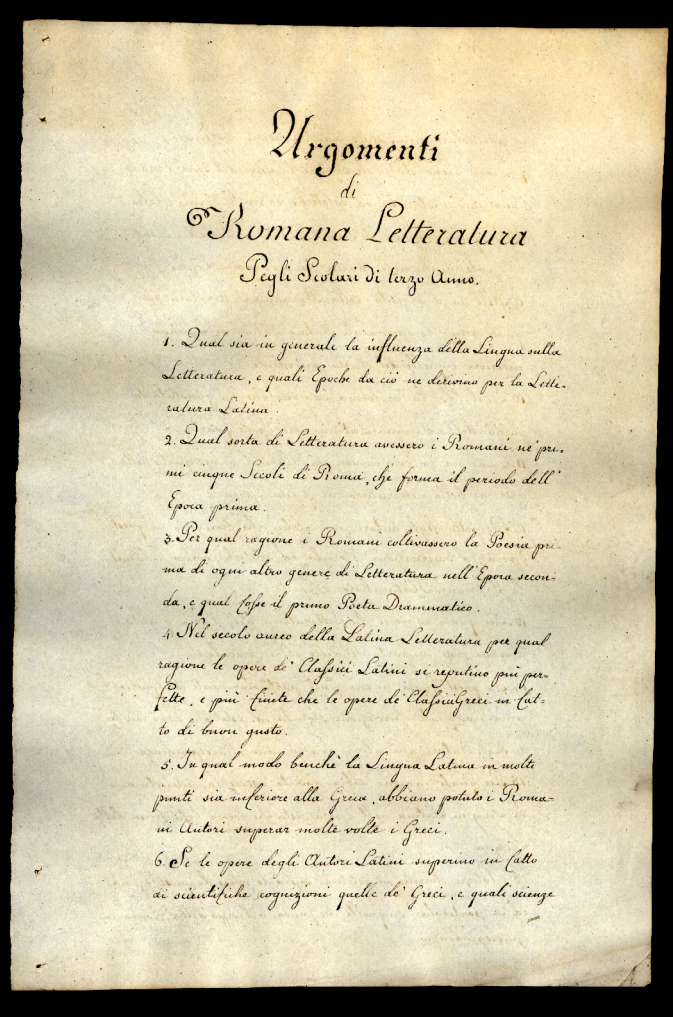 Argomenti
di
Romana Letteratura
Pegli Scolari di terzo Anno.
1. Qual sia in generale la influenza della Lingua sulla
Letteratura, e quali Epoche da ciò ne derivino per la Lette-
ratura Latina.
2. Qual sorta di Letteratura avessero i Romani ne' pri-
mi cinque Secoli di Roma, che forma il periodo dell'
Epoca prima.
3. Per qual ragione i Romani coltivassero la Poesia pri-
ma di ogni altro genere di Letteratura nell'Epoca secon-
da, e qual fosse il primo Poeta Drammatico.
4. Nel secolo aureo della Latina Letteratura per qual
ragione le opere de' Classici Latini si reputino più per-
fette, e più finite che le opere de' Classici Greci in fat-
to di buon gusto.
5. In qual modo benchè la Lingua Latina in molti
punti sia inferiore alla Greca, abbiano potuto i Roma-
ni Autori superar molte volte i Greci.
6. Se le opere degli Autori Latini superino in fatto
di scientifiche cognizioni quelle de' Greci, e quali scienze